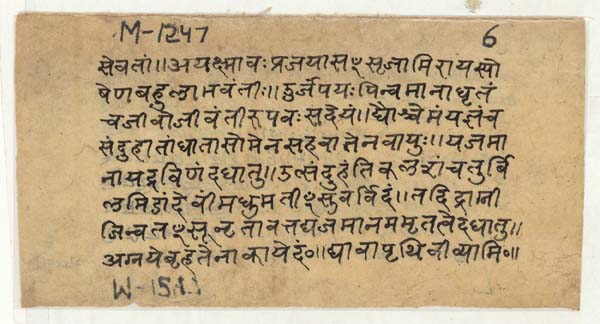 M-1247 6
सेवतां॥अयक्ष्मावः प्रजयासꣳसृजामिरायस्पो
षेणबहुलाभवंतीः॥ऊर्जंपयःपिन्वमानाघृतं
चजीवोजीवंतीरुपवःसदेयं॥द्यौश्चेमंयज्ञंच
संदुहातांधातासोमेनसहवातेनवायुः॥यजमा
नायद्रविणंदधातु॥उत्संदुहंतिकलशंचतुर्बि
लमिडांदेवींमधुमतीꣳसुवर्विदं॥तदिंद्राग्नी
जिन्वतꣳसूनृतावत्तद्यजमानममृतत्वेदधातु॥
अग्नयेबृहतेनाकायेदं०॥द्यावापृथिवीभ्यामि०॥
W-151